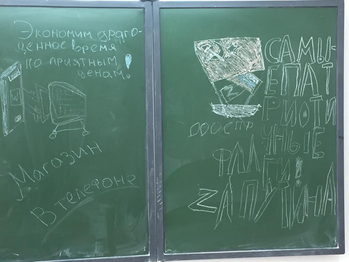 Экономим драго-
ценное время
по приятным
ценам!
Магазин
В телефоне
САМЫ-
Е ПАТ
РИОТИ
ЧНЫЕ
ФЛА
ГИ!
ZА ПУТИНА